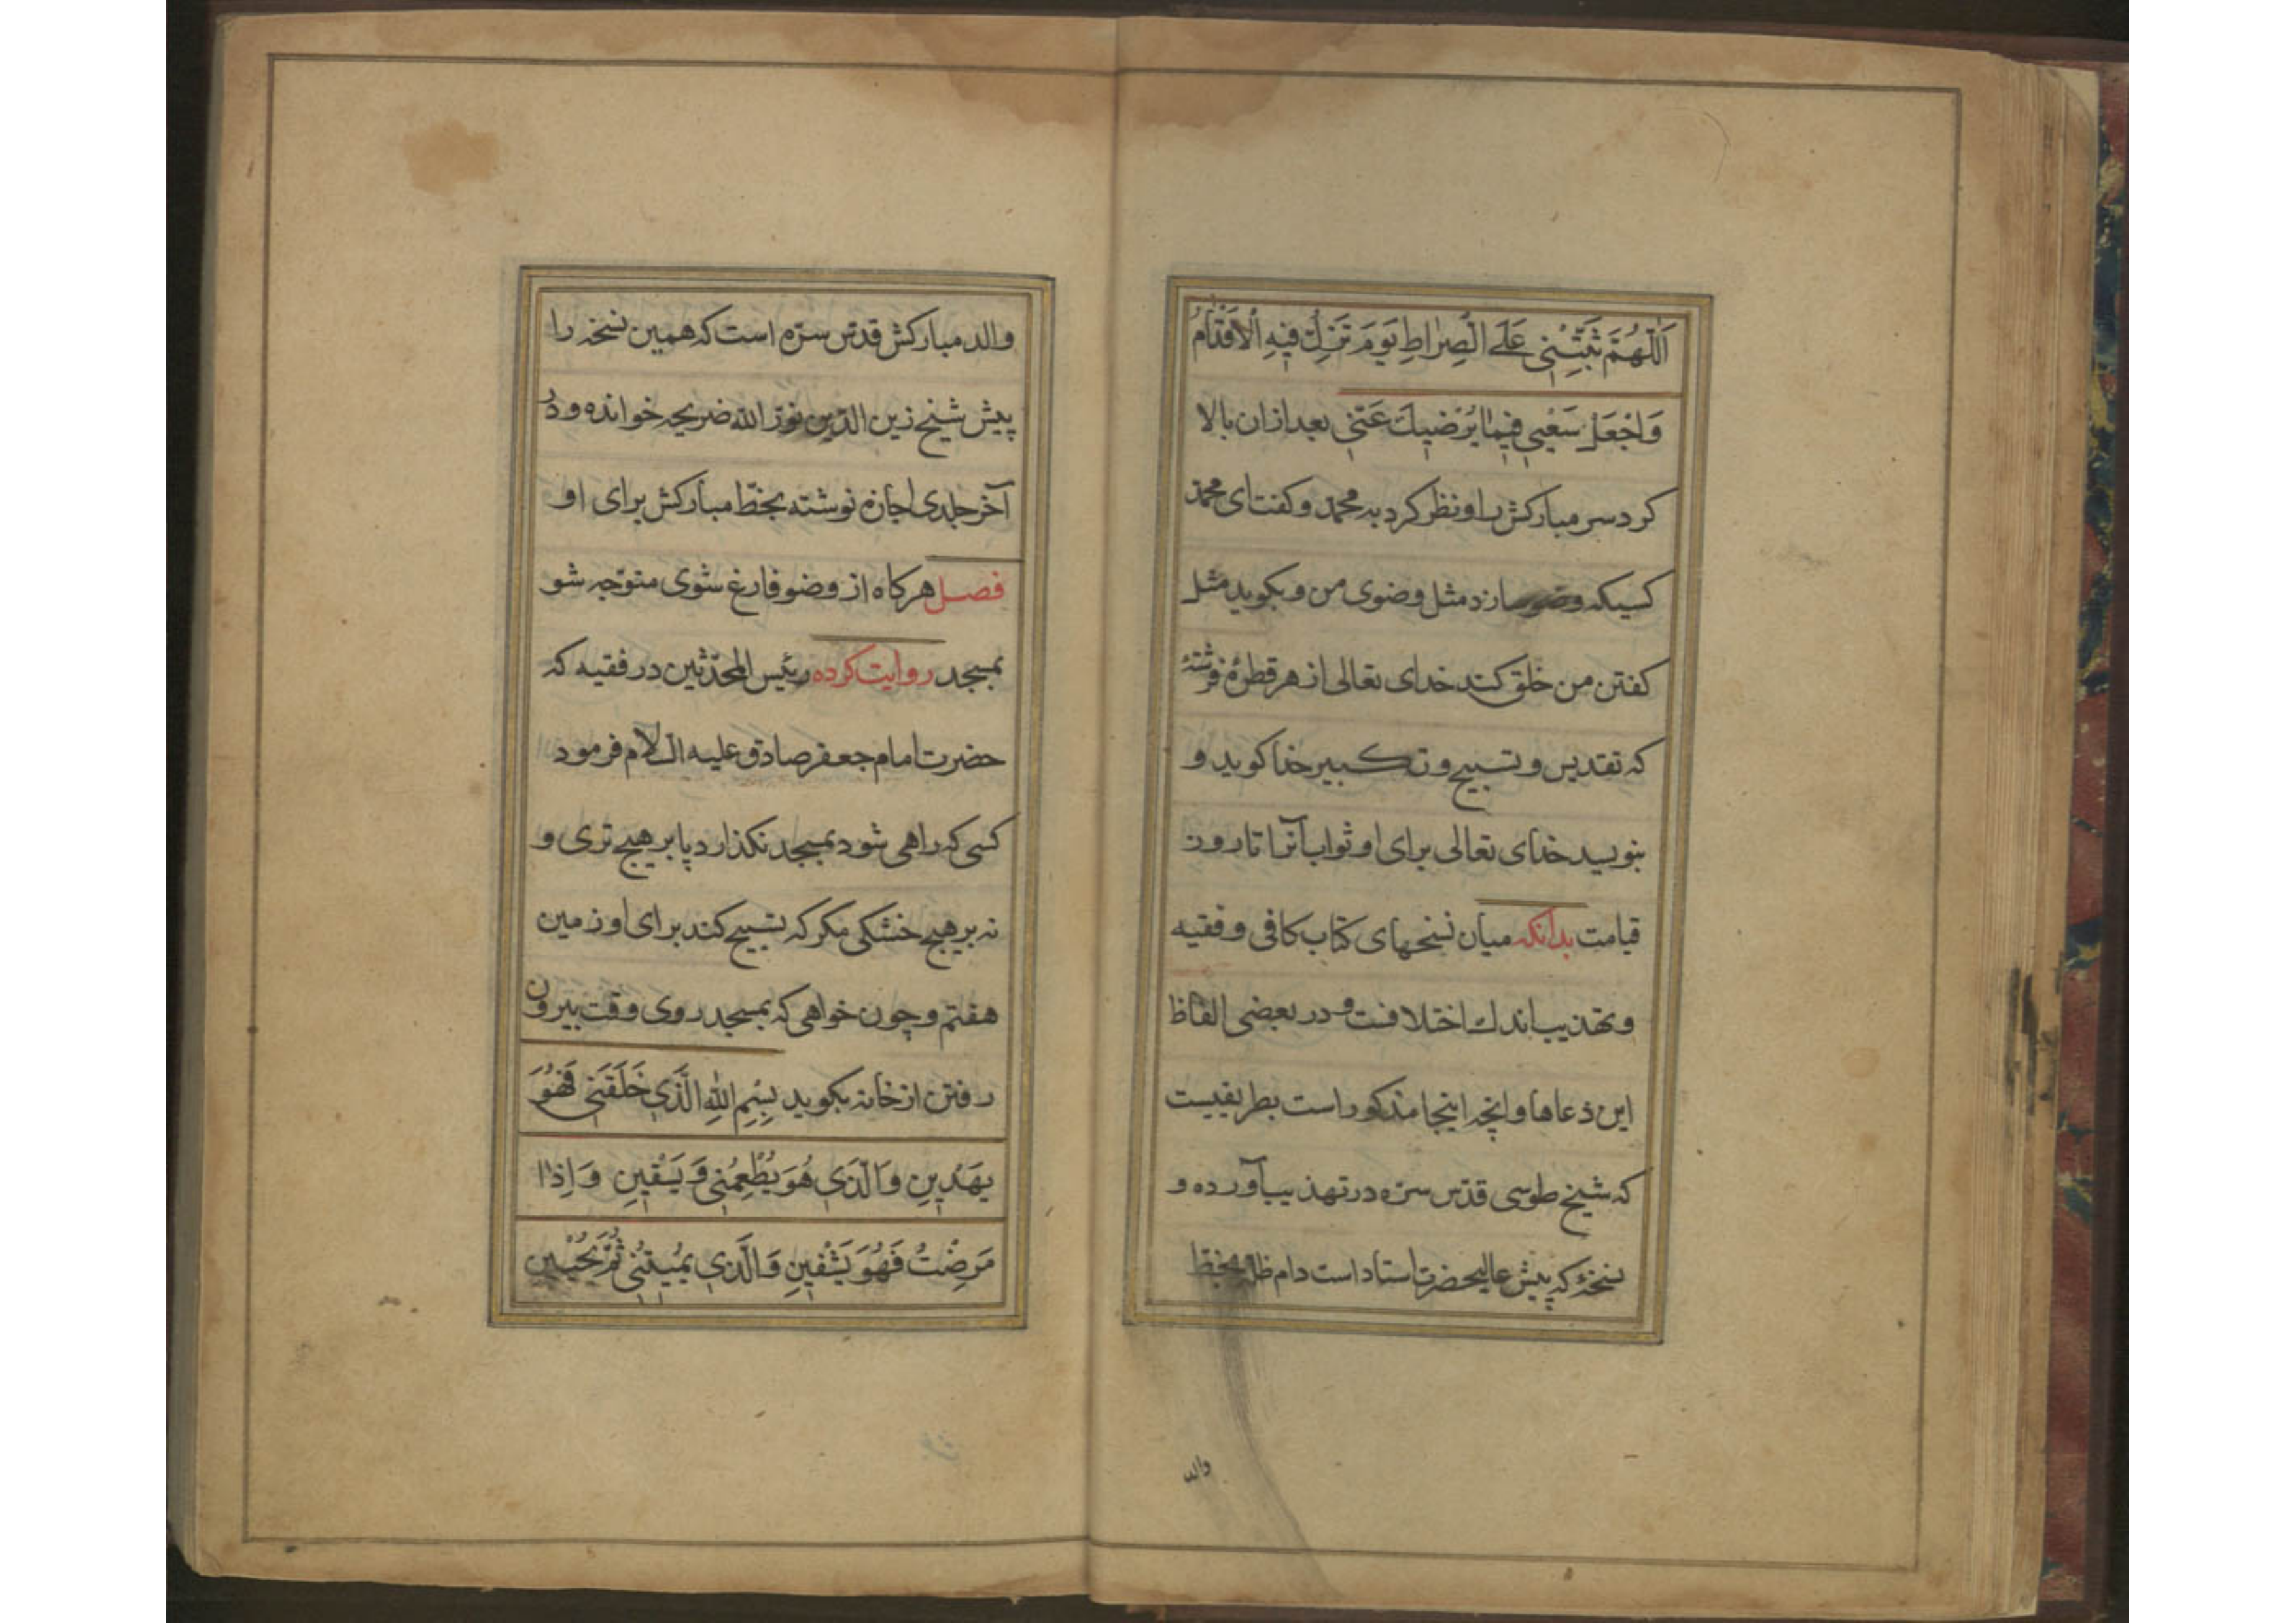 اَللّٰهُمَّ ثَبِّتْنِي عَلَى الصِّرَاطِ يَوْمَ تَزِلُّ فِيهِ الْأَقْدَامُ
وَاجْعَلْ سَعْيِي فِيمَا يُرْضِيكَ عَنِّي بعد ازان بالا
کرد سر مبارکش را و نظر کرد به محمد و کفت ای محمد
کسیکه وضو سازد مثل وضوی من و بکوید مثل
کفتن من خلق کند خدای تعالی از هر قطرهٔ فرشتهٔ
که تقدیس و تسبیح و تکبیر خدا کوید و
بنویسد خدای تعالی برای او ثواب آنرا تا روز
قیامت بدانکه میان نسخهای کتاب کافی و فقیه
و تهذیب اندک اختلافست و در بعضی الفاظ
این دعاها و انچه اینجا مذکور است بطریقیست
که شیخ طوسی قدّس سرّه در تهذیب آورده و
نسخهٔ که پیش عالیحضرت استاد است دام ظله بخط
والد
والد مبارکش قدّس سرّه است که همین نسخه را
پیش شیخ زین الدّین نوّر اللّه ضریحه خوانده و در
آخر جلدی اجازه نوشته بخطّ مبارکش برای او
فصل هرکاه از وضو فارغ شوی متوّجه شو
بمسجد روایت کرده رئیس المحدّثین در فقیه که
حضرت امام جعفر صادق علیه السلام فرمود
کسی که راهی شود بمسجد نکذارد پا بر هیچ تری و
نه بر هیچ خشکی مکر که تسبیح کند برای او زمین
هفتم و چون خواهی که بمسجد روی وقت بیرون
رفتن از خانه بکوید بِسْمِ اللّٰهِ الَّذِي خَلَقَنِي فَهُوَ
يَهْدِينِ وَالَّذِي هُوَ يُطْعِمُنِي وَيَسْقِينِ وَاِذَا
مَرِضْتُ فَهُوَ يَشْفِينِ وَالَّذِي يُمِيتُنِي ثُمَّ يُحْيِينِ